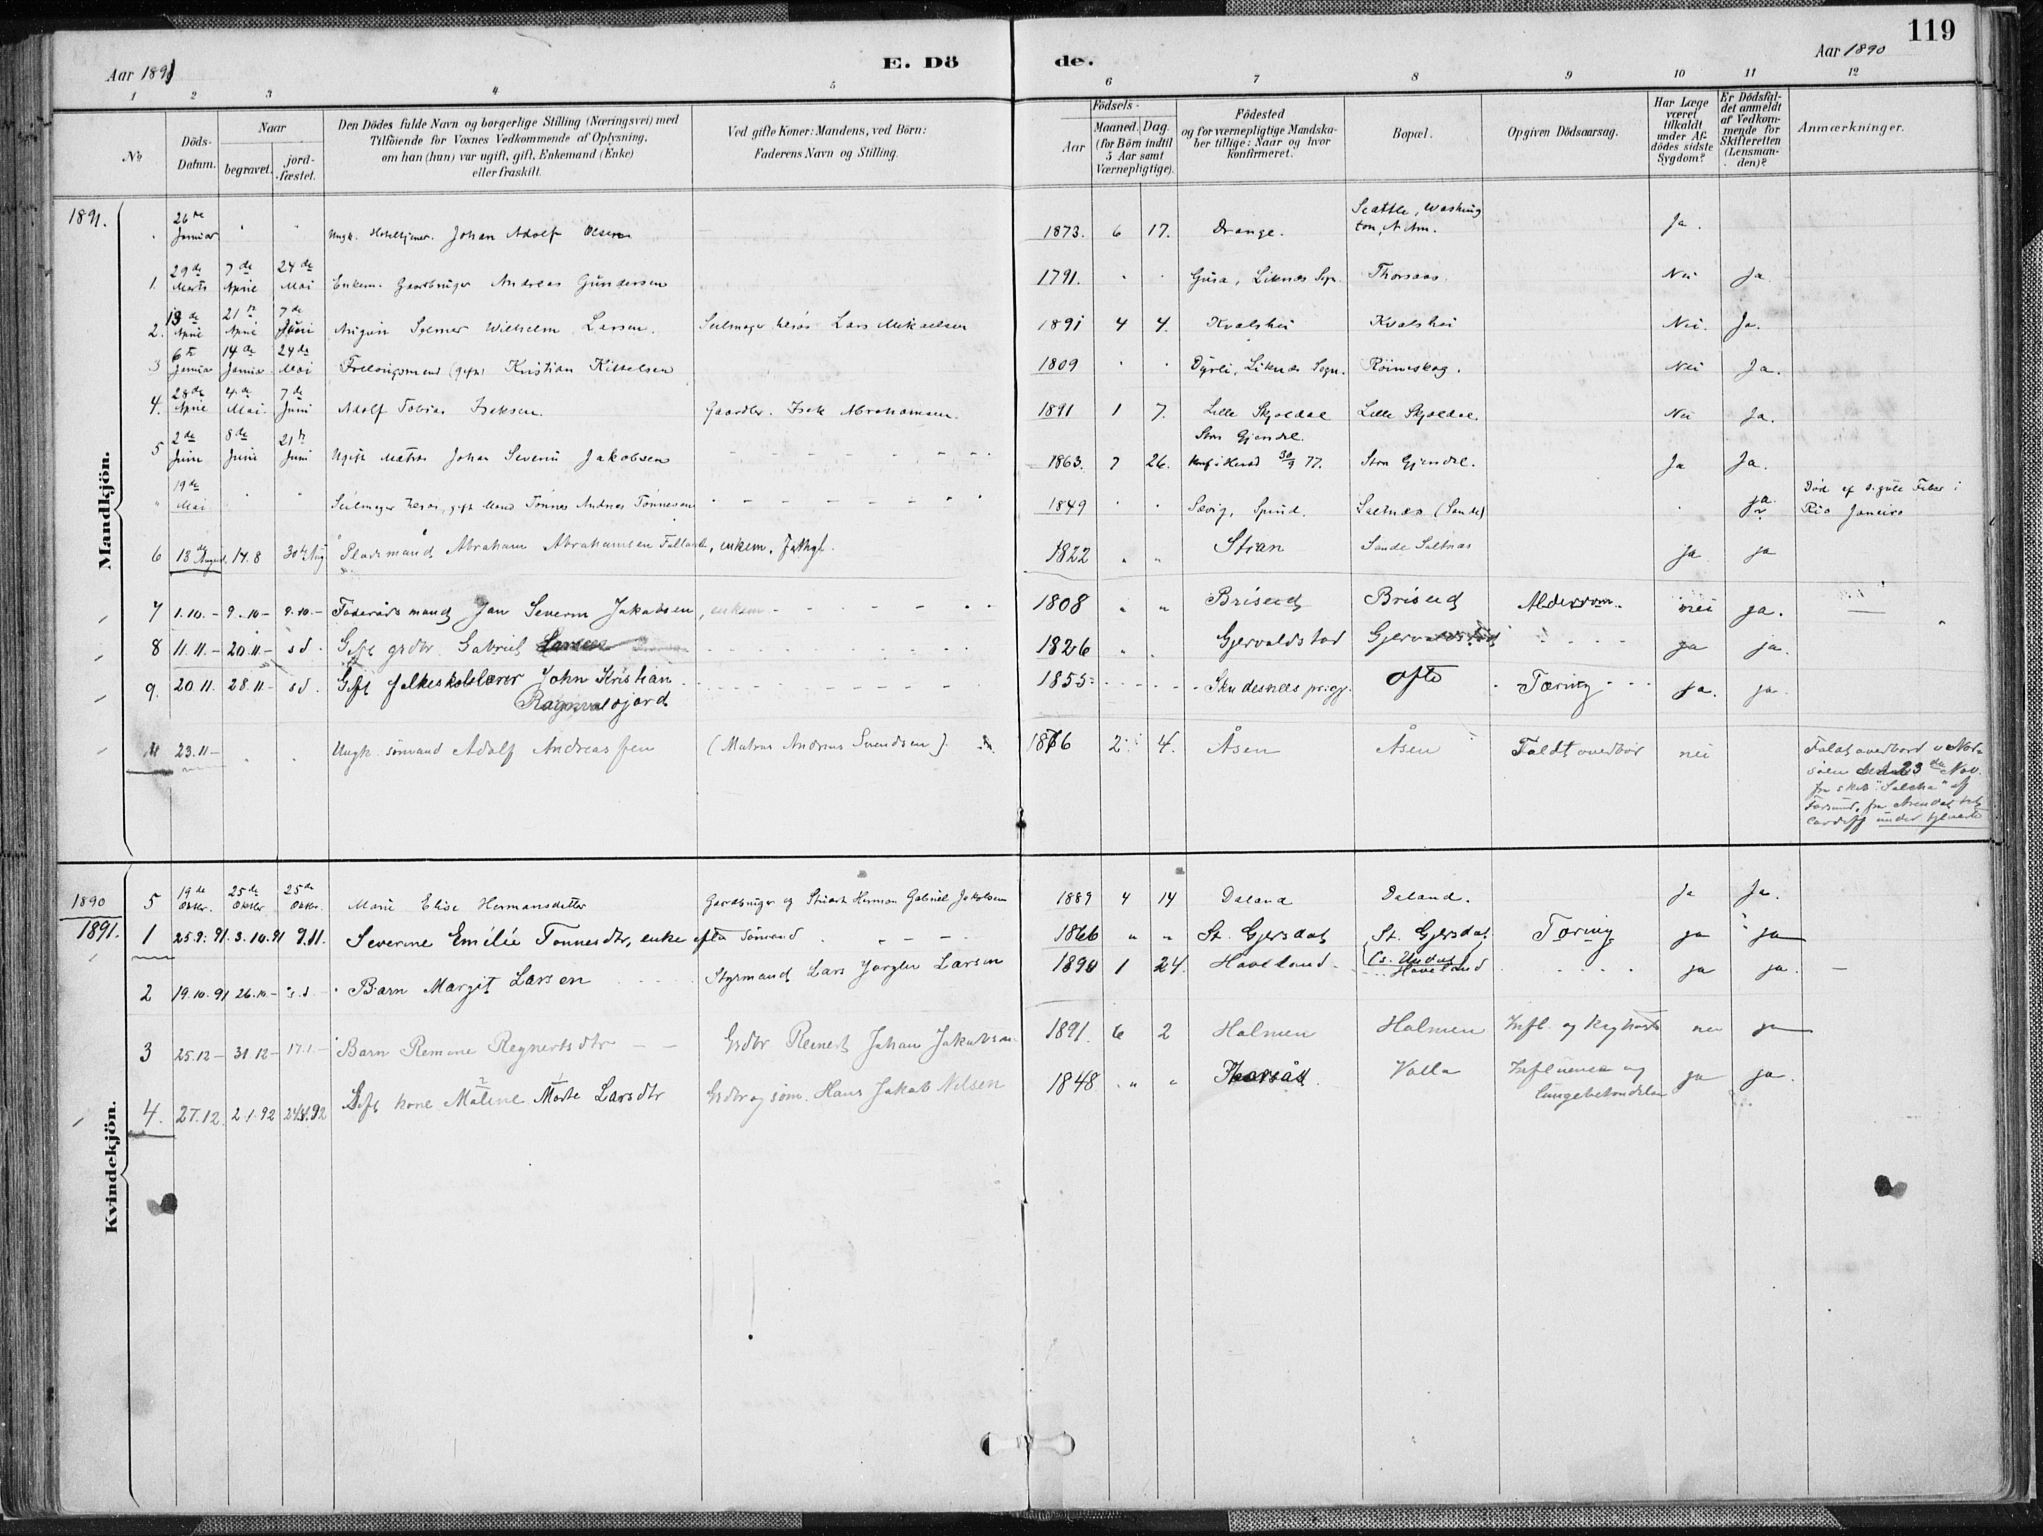 119
Aar 1891
E. Dö
de.
Aar 1890
1 2 3 4 5 6 7 8 9 10 11 12
No
Döds-
Datum.
Naar
begravet.
jord-
fæstet.
Den Dödes fulde Navn og borgerlige Stilling (Næringsvei) med
Tilföiende for Voxnes Vedkommende af Oplysning,
om han (hun) var ugift, gift, Enkemand (Enke)
eller fraskilt.
Ved gifte Koner: Mandens, ved Börn:
Faderens Navn og Stilling.
Födsels-
Aar
Maaned. Dag.
(for Börn indtil
5 Aar samt
Værnepligtige).
Födested
og for værnepligtige Mandska-
ber tillige: Naar og hvor
konfirmeret.
Bopæl.
Opgiven Dödsaarsag.
Har Læge
været
tilkaldt
under Af-
dödes sidste
Sygdom?
Er Dödsfal-
det anmeldt
af Vedkom-
mende for
Skifteretten
(Lensman-
den)?
Anmærkninger.
Mandkjön.
1891.
26de Januar " " Ungk. Hoteltjener Johan Adolf Olsen 1873. 6 17. Drange. Seattle, Washing
ton, N. Am. Ja.
1. 29de Marts 7de April 24de Mai Enkem. Gaardbruger Andreas Gundersen 1791. " " Gusa, Liknes Sogn Thorsaas. Nei Ja.
2. 13de April 21de April 7de Juni August Selmer Wilhelm Larsen. Seilmager Lars Mikaelsen 1891 4 4. Kvalshei Kvalshei Nei. Ja.
3 6te Januar 14de Januar 24de Mai (gift) Kristian Kittelsen 1809 " " Dyrli, Liknes Sogn. Röineskog. Nei Ja.
4. 28de April 4de Mai. 7de Juni Adolf Tobias Iseksen. Gaardbr. Isek Abrahamsen. 1891 1 7. Lille Skjoldal Lille Skjoldal. Nei Ja.
5 2de Juni 8de Juni 21de Juni Ugift Matros Johan Severin Jakobsen 1863. 7 26. Stor Gjersdal.
Konf i Herad 30/9 77. Stor Gjersdal. Ja Ja.
" 19de Mai " " Seilmager gift Mand Tönnes Andreas Tönnesen 1849 " " Sævig, Spind. Saltnæs (Sande) ja Död af d. gule Feber i
Rio Janeiro
6 13de August. 14.8 30te Aug Pladsmand Abraham Abrahamsen, enkem. 1822 " " Stran Sande Saltnæs ja ja
7 1.10.- 9.10- 9.10.- Föderådsmand Jan Severin Jakobsen, enkem 1808 " " Briseid Briseid Alderdom. nei ja.
8 11.11.- 20.11- sd. Gift grdbr. Gabriel 1826 " Gjervoldstad ja ja.
9. 20.11. 28.11- sd. Gift folkeskolelærer John Kristian
Ragnvaldsjord 1855 Skudesnæs prgj. Ofte Tæring ja. ja.
23.11- " " Ungk. sömand Adolf Andreassen (Matros Andreas Svendsen). 1876 2 4. Åsen Åsen Faldt overbor nei Faldt overbord i Nord-
söen den 23de Nov.
fra skib "Saleha" af
Farsund, fra Arendal til
Cardiff
1890
5 19de Oktbr. 25de Oktbr 25de Oktbr. Marie Elise Hermansdatter Gaardbruger og Stuert Herman Gabriel Jakobsen 1889 4 14 Daland Daland. Ja Ja.
1891.
1 25.9.91. 3.10.91 9.11. Severine Emilie Tönnesdtr, enke efter Sömand 1866 " " St. Gjersdal St. Gjersdal Tæring ja ja
2 19.10.91 26.10- s.d. Barn Margit Larsen Styrmand Lars Jörgen Larsen 1890 1 24. Haveland Haveland ja ja.
3 25.12- 31.12- 17.1.- Barn Remine Regnertsdtr Grdbr Reinert Johan Jakobsen 1891. 6 2 Holmen Holmen Infl. og Kighoste nei ja
4. 27.12. 2.1.92 Gift kone Maline Marte Larsdtr Grdbr og söm. Hans Jakob Nilsen 1848 " " Thorsås Valla Influensa og
lungebetændelse ja ja.
Kvindekjön.